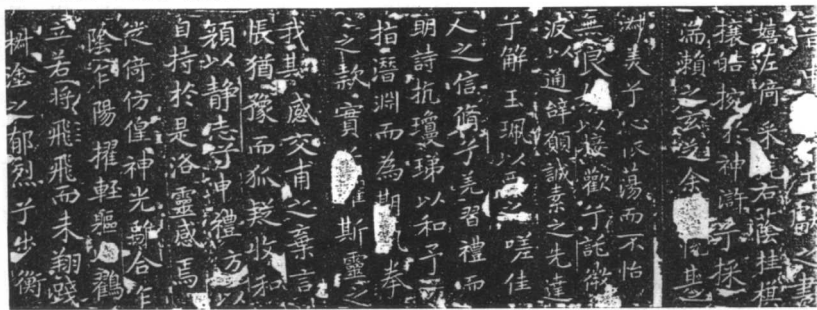 令王獻之書
嬉左倚采旄右蔭桂旗
攘皓捥於神滸兮採
湍瀨之玄芝余情其
淑美兮心振蕩而不怡
無良以接歡兮託微
波以通辭願誠素之先達
兮解玉珮以要之嗟佳
人之信脩兮羌習禮而
明詩抗瓊珶以和予兮
指潛淵而為期執拳
之款實兮懼斯靈之
我欺感交甫之棄言
悵猶豫而狐疑收和
顏以静志兮申禮防以
自持於是洛靈感焉
徙倚仿偟神光離合乍
陰乍陽擢輕軀以鶴
立若将飛飛而未翔踐
椒塗之郁烈兮步衡